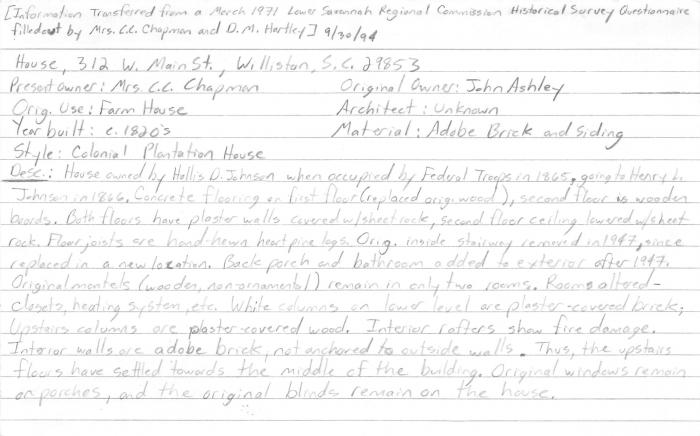 [Information Transferred from a March 1971 Lower Savannah Regional Commission Historical Survey Questionnaire
filled out by Mrs. C.C. Chapman and D.M. Hartley] 9/30/94
House, 312 W. Main St., Williston, S.C. 29853
Present owner: Mrs. C.C. Chapman Original Owner: John Ashley
Orig. Use: Farm House Architect: Unknown
Year built: c. 1820's Material: Adobe Brick and Siding
Style: Colonial Plantation House
Desc.: House owned by Hollis D. Johnson when occupied by Federal Troops in 1865, going to Henry L.
Johnson in 1866. Concrete flooring on first floor (replaced orig. wood), second floor is wooden
boards. Both floors have plaster walls covered w/sheetrock, second floor ceiling lowered w/sheet
rock. Floor joists are hand-hewn heart pine logs. Orig. inside stairway removed in 1947, since
replaced in a new location. Back porch and bathroom added to exterior after 1947.
Original mantels (wooden, non-ornamental) remain in only two rooms. Rooms altered-
closets, heating system, etc. White columns on lower level are plaster-covered brick;
Upstairs columns are plaster-covered wood. Interior rafters show fire damage.
Interior walls are adobe brick, not anchored to outside walls. Thus, the upstairs
floors have settled towards the middle of the building. Original windows remain
on porches, and the original blinds remain on the house.